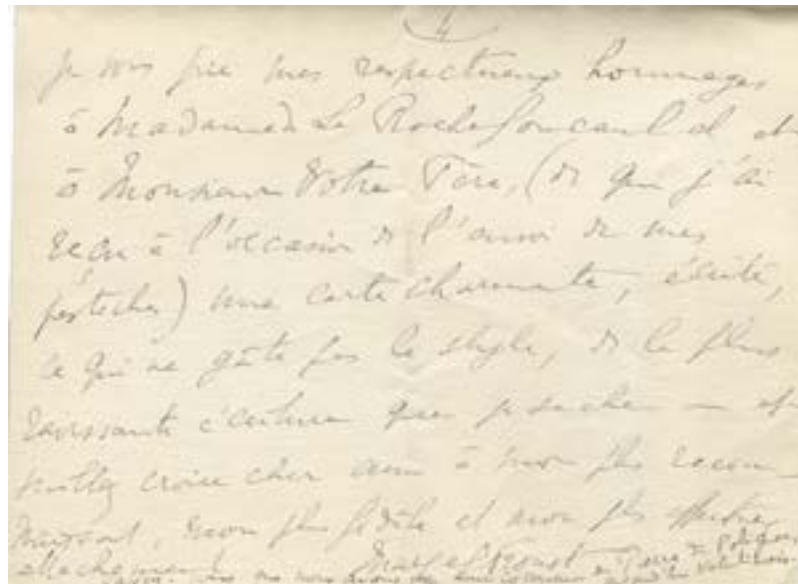 4
je vous prie mes respectueux hommages
à Madame de La Rochefoucauld et
à Monsieur Votre Père, (de qui j'ai
reçu à l'occasion de l'envoi de mes
pastiches) une carte charmante, écrite,
ce qui ne gâte pas le style, de la plus
ravissante écriture que je sache — et
veuillez croire cher ami à mon plus recon-
naissant, mon plus fidèle et mon plus
attachement Marcel Proust